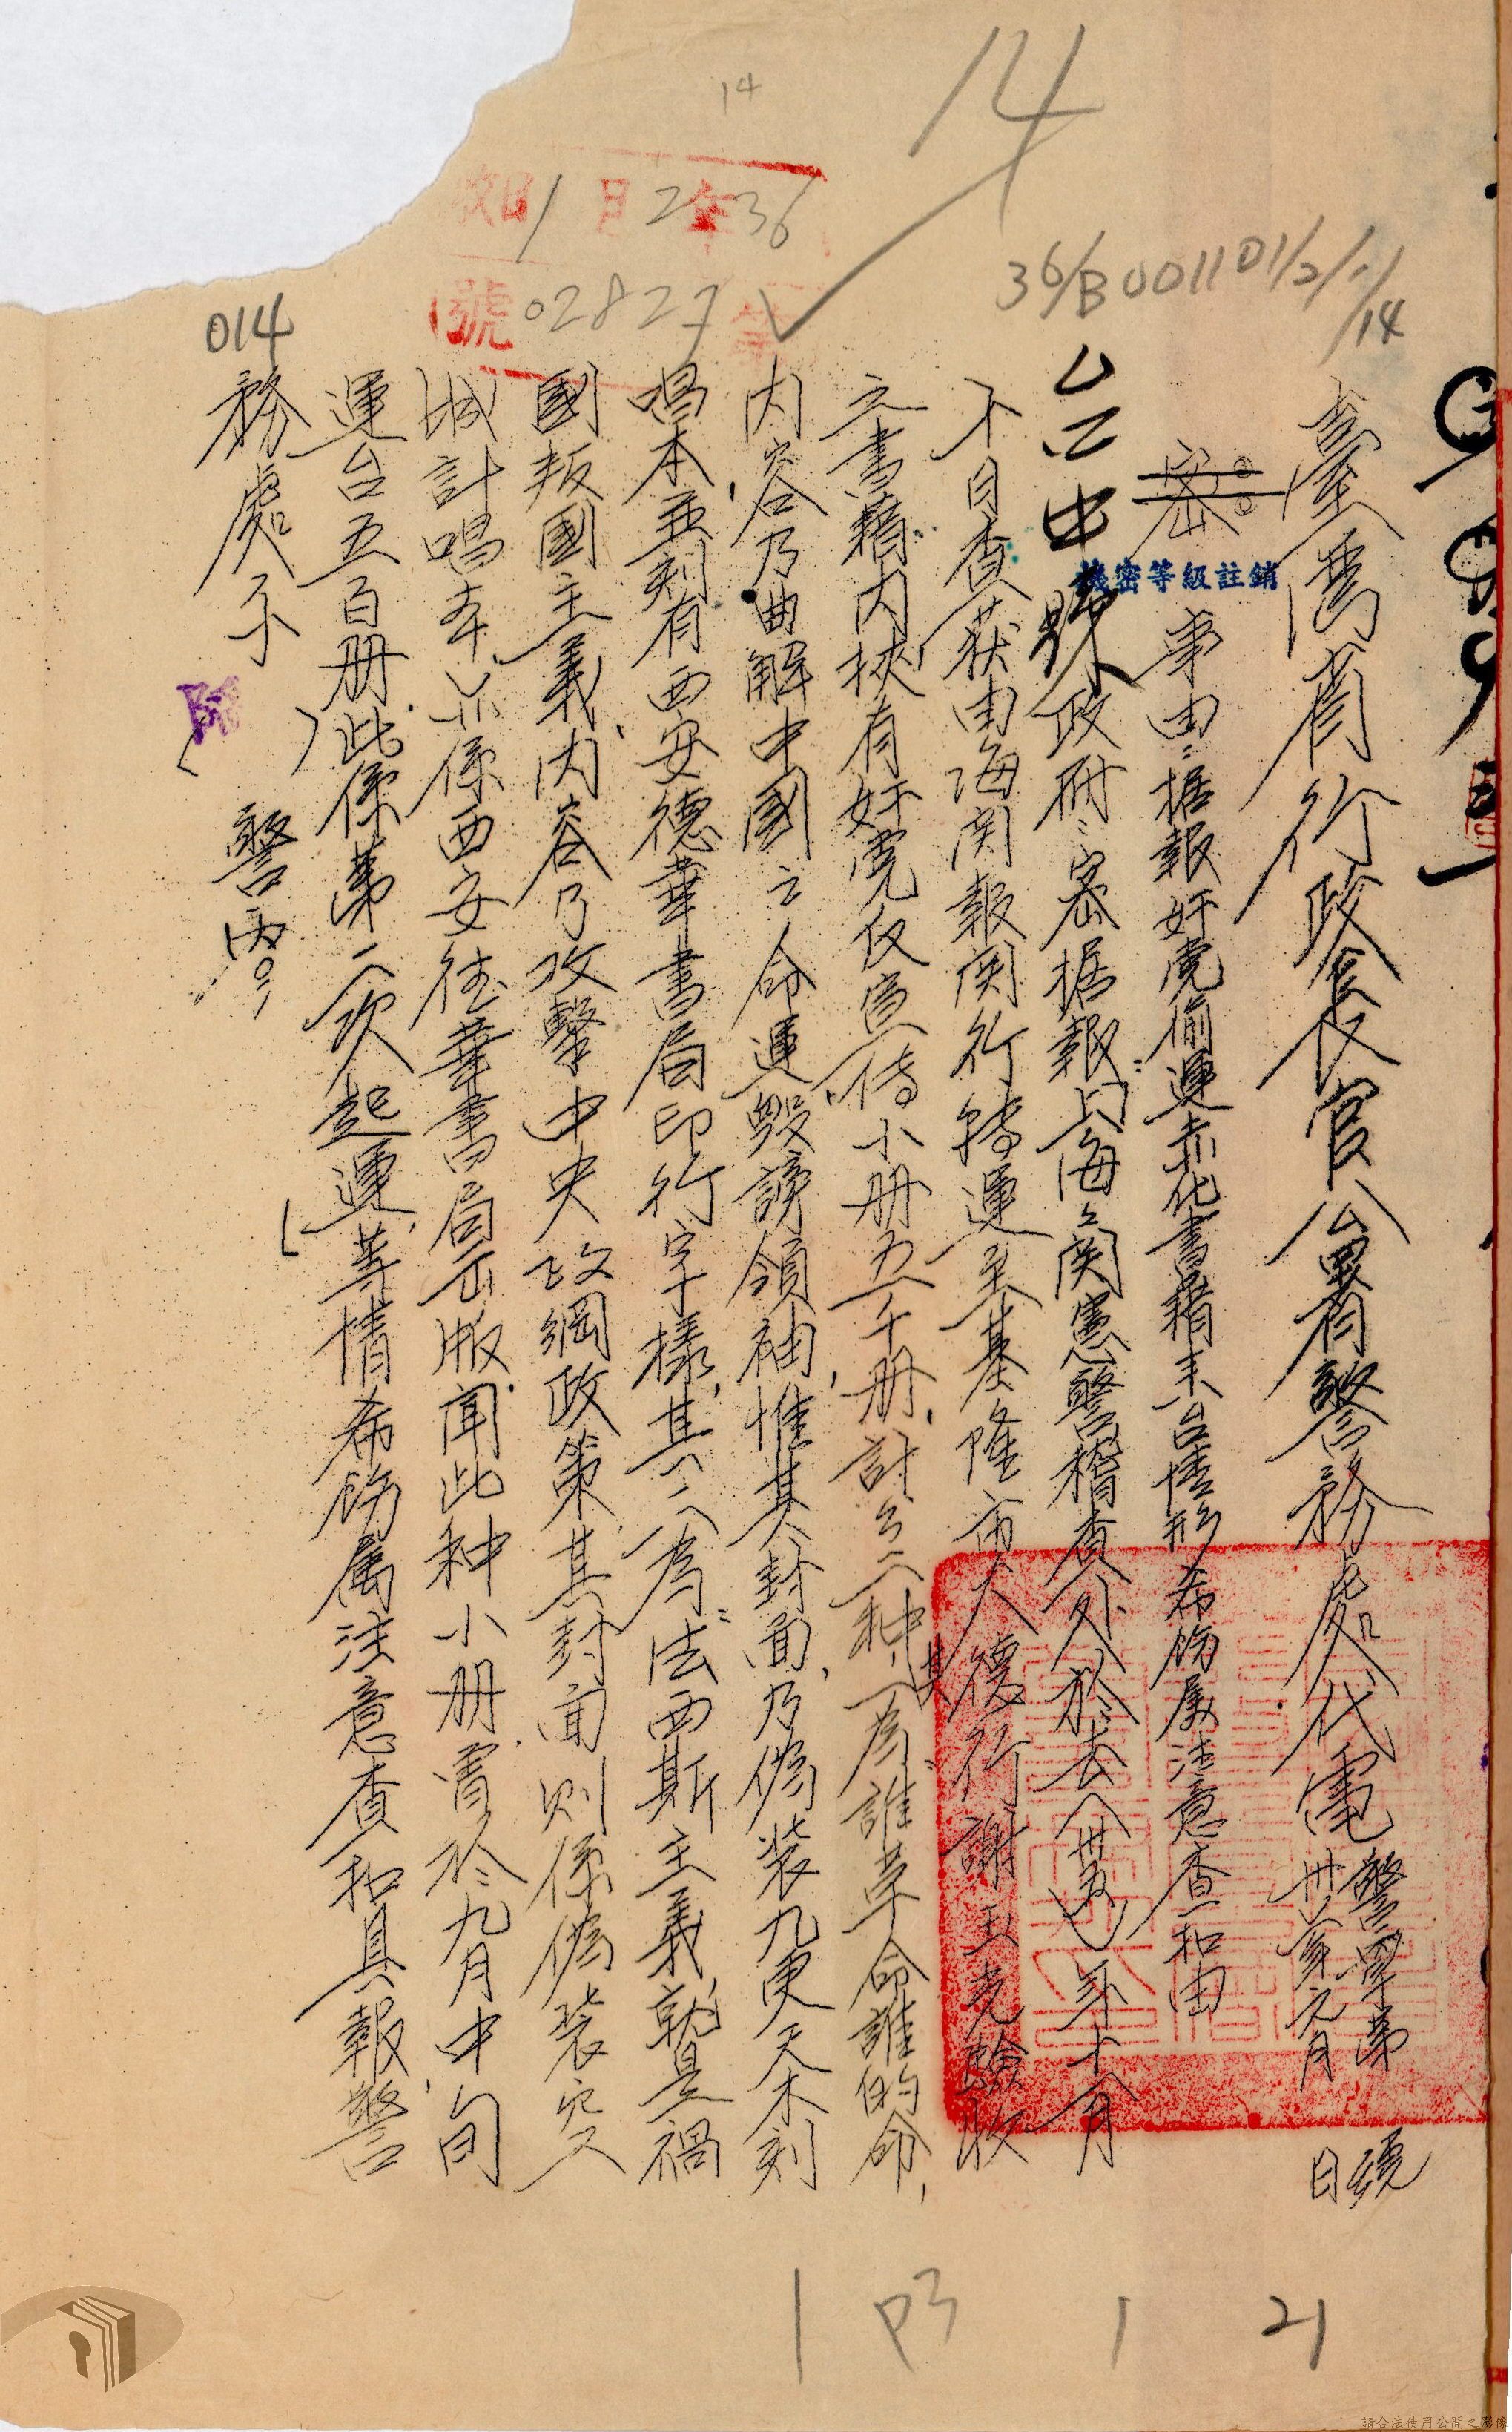 14
14
36年2月1日收
號02827
36/B00110 1/2/1/14
014
臺灣省行政長官公署警務處代電
警甲字第 號
卅六年元月 日
密
機密等級註銷
事由:据報奸党偷運赤化書籍来台情形希飭属注意查扣由
台中縣政府:密据報:「上海关関憲警稽查外於去(卅五)年十一月
不日查获由海関報関行轉運至基隆市人德行謝玉光驗收
之書籍内挾有奸党仅宣傳小册五千册,計分二种,其一為:誰革命誰的命,
内容乃曲解中國之命運毀謗領袖,惟其封面乃偽装九更天木刻
唱本並刻有西安德華書局印行字樣,其二為:法西斯主義,就是禍
國叛國主義,内容乃攻擊中央政綱政策,其封面則係偽装空
城計唱本亦係西安德華書局出版,聞此种小册曾於九月中旬
運台五百册,此係第二次起運」等情希飭属注意查扣具報,警
務處子( )警丙
1 P3 1 21
請合法使用公開之影像